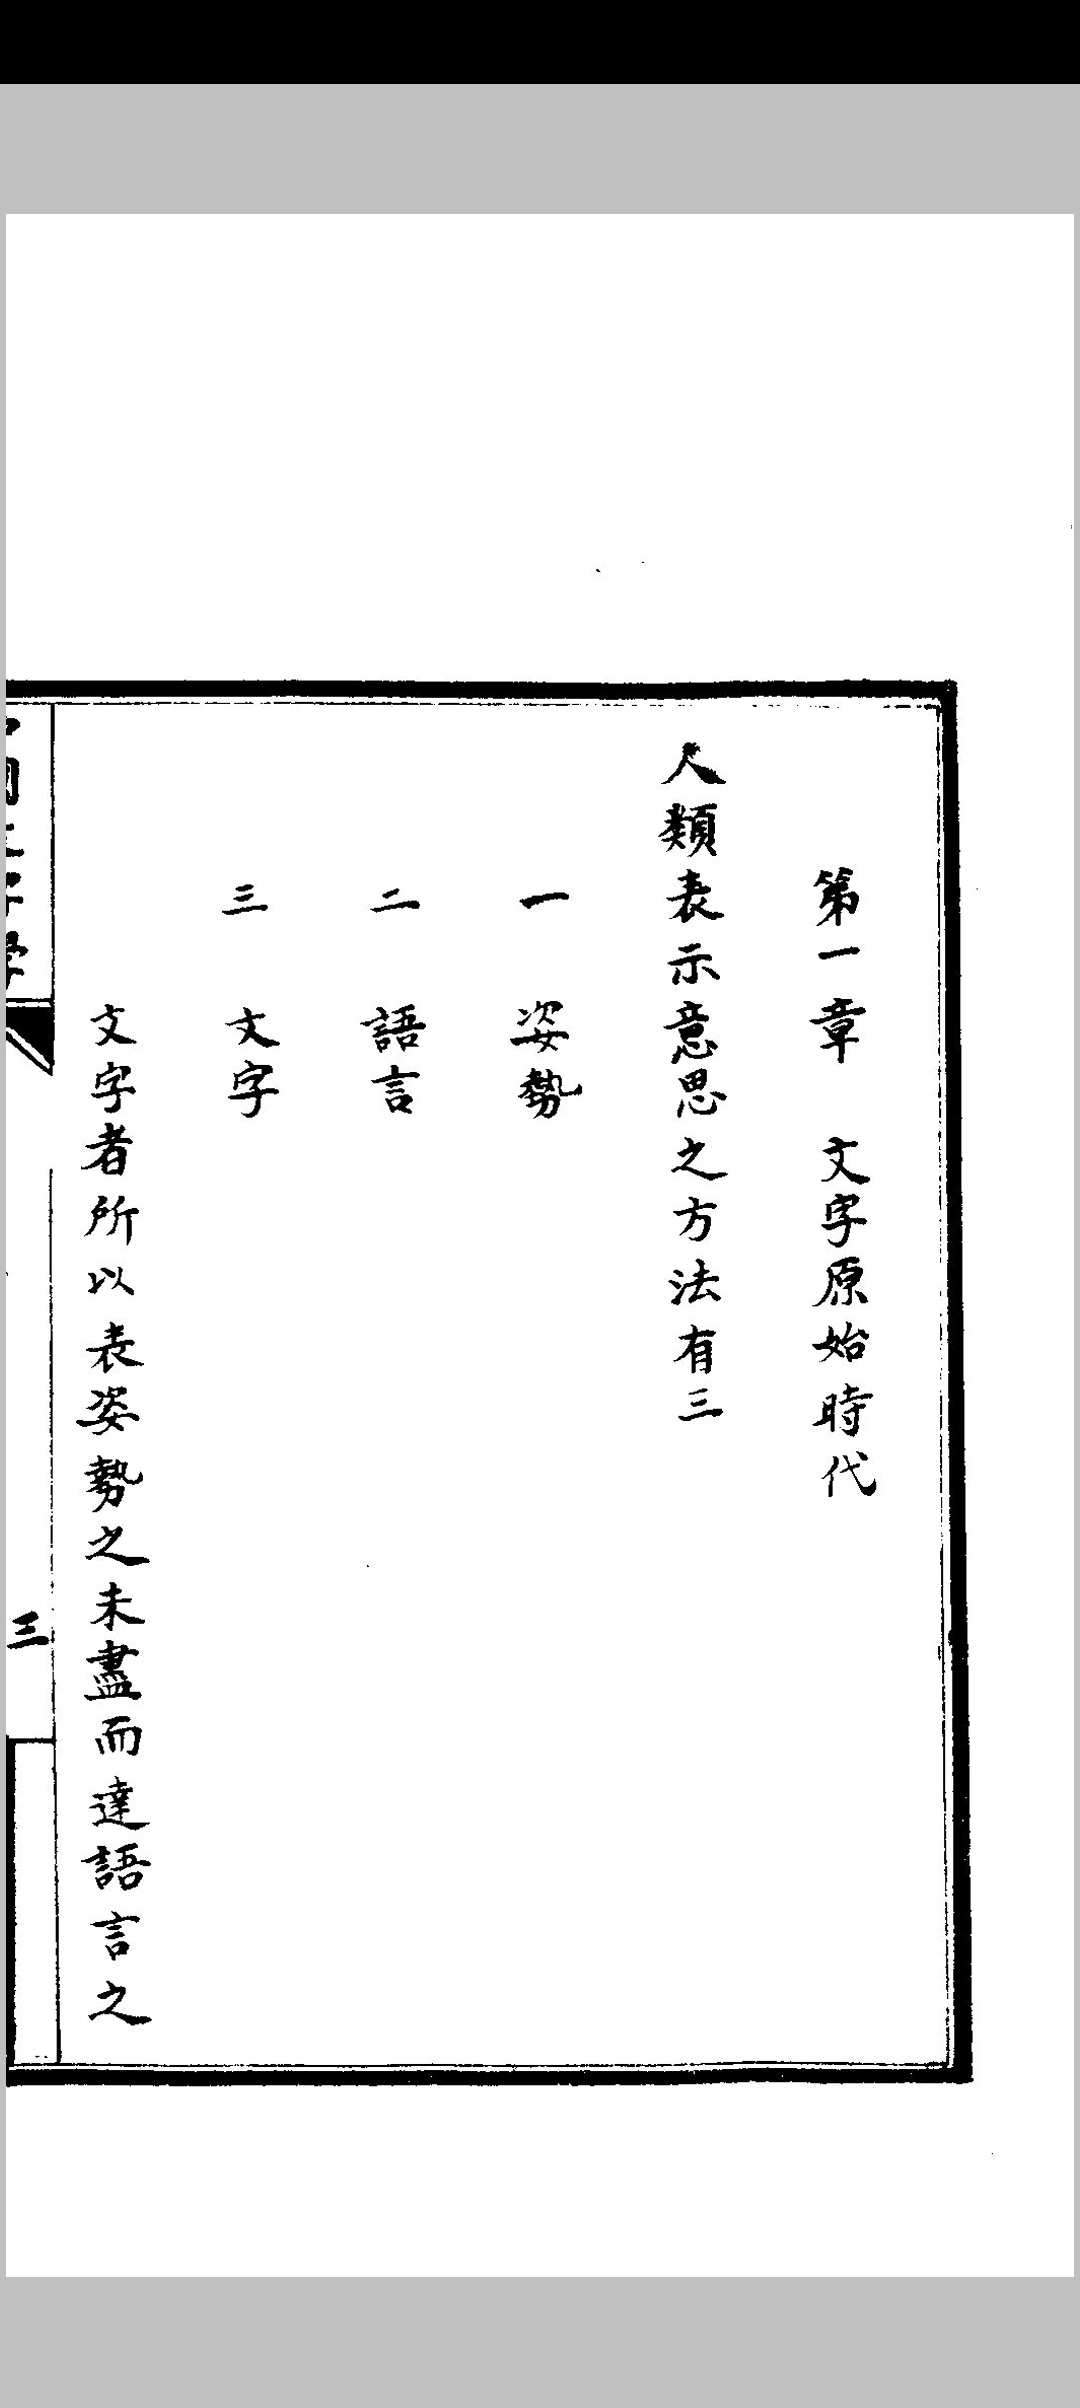 第一章　文字原始時代
人類表示意思之方法有三
一　姿勢
二　語言
三　文字
文字者所以表姿勢之未盡而達語言之
三